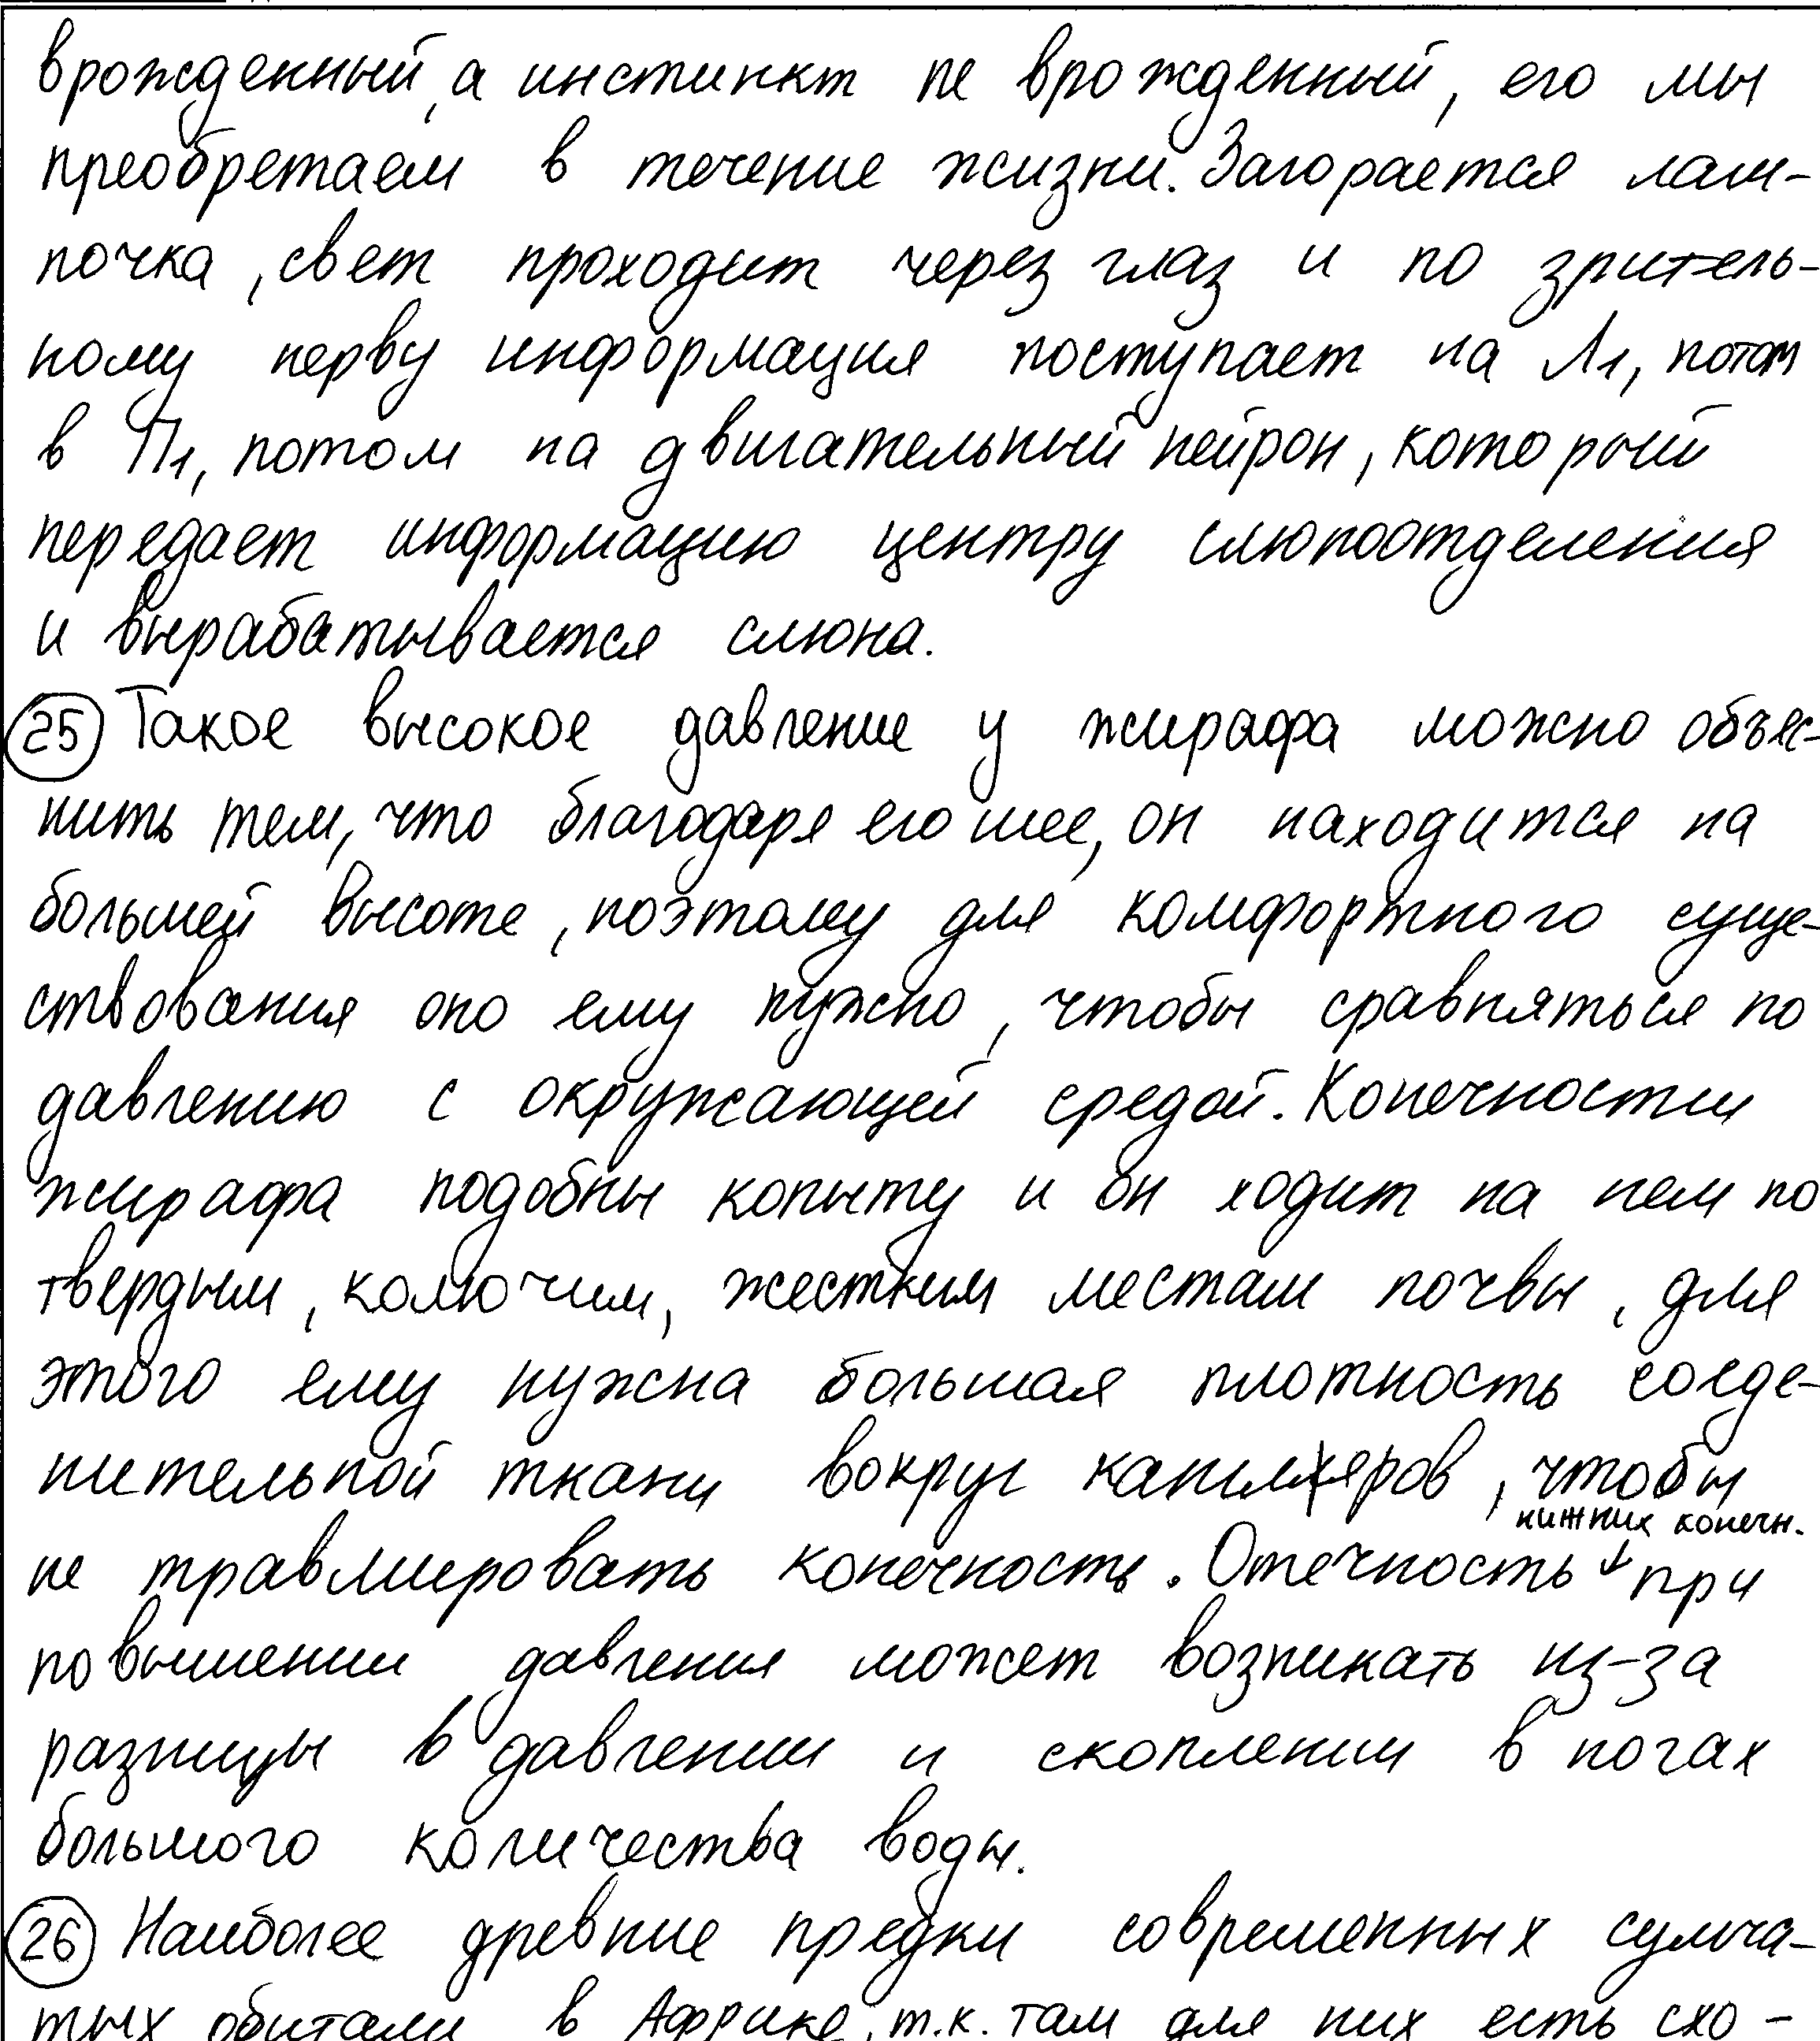 врожденный, а инстинкт не врожденный, его мы
преобретаем в течение жизни. Загорается лам-
почка, свет проходит через глаз и по зритель-
ному нерву информация поступает на Л1, потом
в П1, потом на двигательный нейрон, который
передает информацию центру слюноотделения
и вырабатывается слюна.
25 Такое высокое давление у жирафа можно объяс-
нить тем, что благодаря его шее, он находится на
большей высоте, поэтому для комфортного суще-
ствования оно ему нужно, чтобы сравняться по
давлению с окружающей средой. Конечности
жирафа подобны копыту и он ходит на нем по
твердым, колючим, жестким местам почвы, для
этого ему нужна большая плотность соеде-
нительной ткани вокруг капиляров, чтобы
нижних конечн.
не травмировать конечность. Отечность ↓ при
повышении давления может возникать из-за
разницы в давлении и скоплении в ногах
большого количества воды.
26 Наиболее древние предки современных сумча-
тых обитали в Африке, т.к. там для них есть схо-